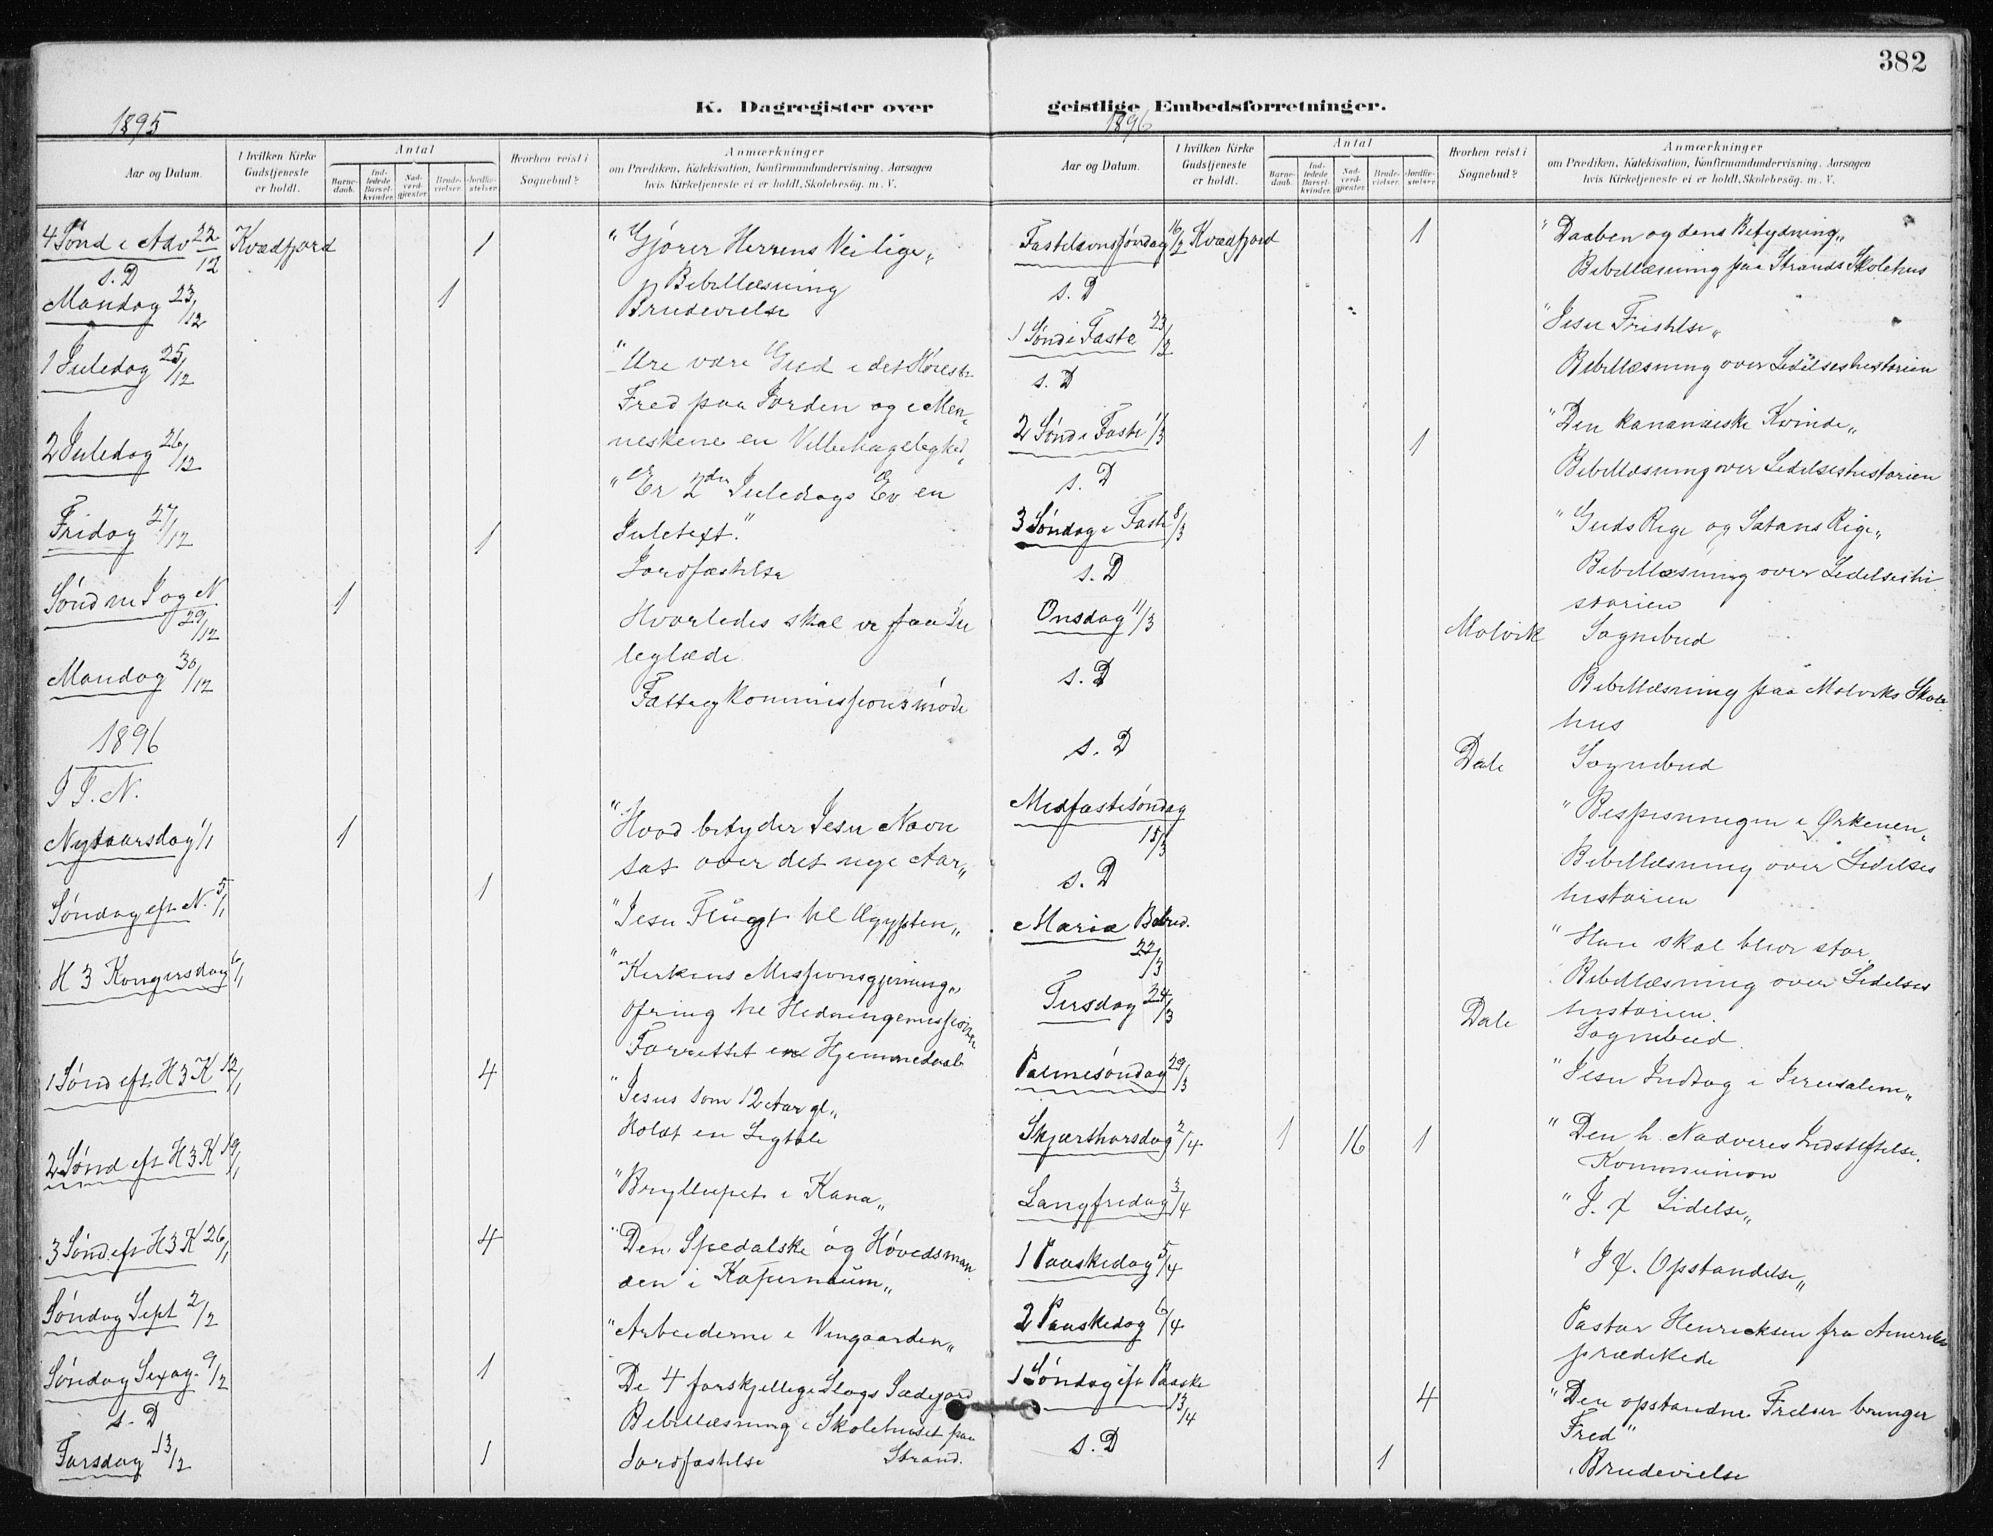 382
K. Dagregister over geistlige Embedsforretninger.
1895
Aar og Datum.
I hvilken Kirke Gudstjeneste er holdt.
Antal
Barnedaab.
Indledede Barselkvinder.
Nadverdgjæster.
Brudevielser.
Jordfæstelser.
Hvorhen reist i Sognebud?
Anmærkninger
om Prædiken, Katekisation, Konfirmandundervisning, Aarsagen
hvis Kirketjeneste ei er holdt, Skolebesøg. m. V.
4 Sönd i Adv 22/12 Kvædfjord 1 "Gjører Herrens Vei lige„
s. D Bibellæsning
Mandag 23/12 1 Brudevielse
1 Juledag 25/12 "Ære være Gud i det Høieste
Fred paa Jorden og i Men„
neskene en Velbehagelighed„
2 Juledag 26/12 "Er 2den Juledags Ev en
Juletext."
Fridag 27/12 1 Jordfæstelse
Sönd m J og N 29/12 1 Hvorledes skal vi faa Ju
leglæde
Mandag 30/12 Fattigkommissionsmöde
1896
I J. N.
Nytaarsdag 1/1 1 "Hvad betyder Jesu Navn
sat over det nye Aar„
Söndag eft N. 5/1 1 "Jesu Flugt til Ægypten„
H 3 Kongersdag 6/1 "Kirkens Missionsgjerning„
Ofring til Hedningemissionen
Forrettet en Hjemmedaab
1 Sönd eft H 3 K 12/1 4 "Jesus som 12 Aar gl„
Holdt en Ligtale
2 Sönd eft H 3 K 19/1 "Bryllupet i Kana„
3 Sönd eft H 3 K 26/1 4 "Den Spedalske og Høvedsman
den i Kapernaum„
Söndag Sept 2/2 "Arbeiderne i Vingaarden„
Söndag Sexag. 9/2 1 De 4 forskjellige Slags Sædejord
s. D Bibellæsning i Skolehuset paa
Strand.
Torsdag 13/2 1 Jordfæstelse
1896
Aar og Datum.
I hvilken Kirke Gudstjeneste er holdt.
Antal
Barnedaab.
Indledede Barselkvinder.
Nadverdgjæster.
Brudevielser.
Jordfæstelser.
Hvorhen reist i Sognebud?
Anmærkninger
om Prædiken, Katekisation, Konfirmandundervisning, Aarsagen
hvis Kirketjeneste ei er holdt, Skolebesøg. m. V.
Fastelavnssöndag 16/2 Kvædfjord 1 "Daaben og dens Betydning„
s. D Bibellæsning paa Strands Skolehus
1 Sönd i Faste 23/2 "Jesu Fristelse„
s. D Bibellæsning over Lidelseshistorien
2 Sönd i Faste 1/3 1 "Den kananæiske Kvinde„
s. D Bibellæsning over Lidelseshistorien
3 Söndag i Faste 8/3 "Guds Rige og Satans Rige„
s. D Bibellæsning over Lidelseshi
storien
Onsdag 11/3 Molvik Sognebud
s. D Bibellæsning paa Molviks Skole
hus
s. D Dale Sognebud
Midfastesöndag 15/3 "Bespisningen i Ørkenen„
s. D Bibellæsning over Lidelses
historien
Mariæ Bebud. 22/3 "Han skal blive stor
Bibellæsning over Lidelses
historien.
Tirsdag 24/3 Dale Sognebud.
Palmesöndag 29/3 "Jesu Indtog i Jerusalem„
Skjærthorsdag 2/4 1 16 1 "Den h. Nadveres Indstiftelse.
Kommunion
Langfredag 3/4 "J. X Lidelse„
1 Paaskedag 5/4 "J X. Opstandelse„
2 Paaskedag 6/4 Pastor Henricksen fra Amerika
prædikede
1 Söndag eft Paaske 13/4 4 "Den opstandne Frelser bringer
Fred"
s. D 1 Brudevielse